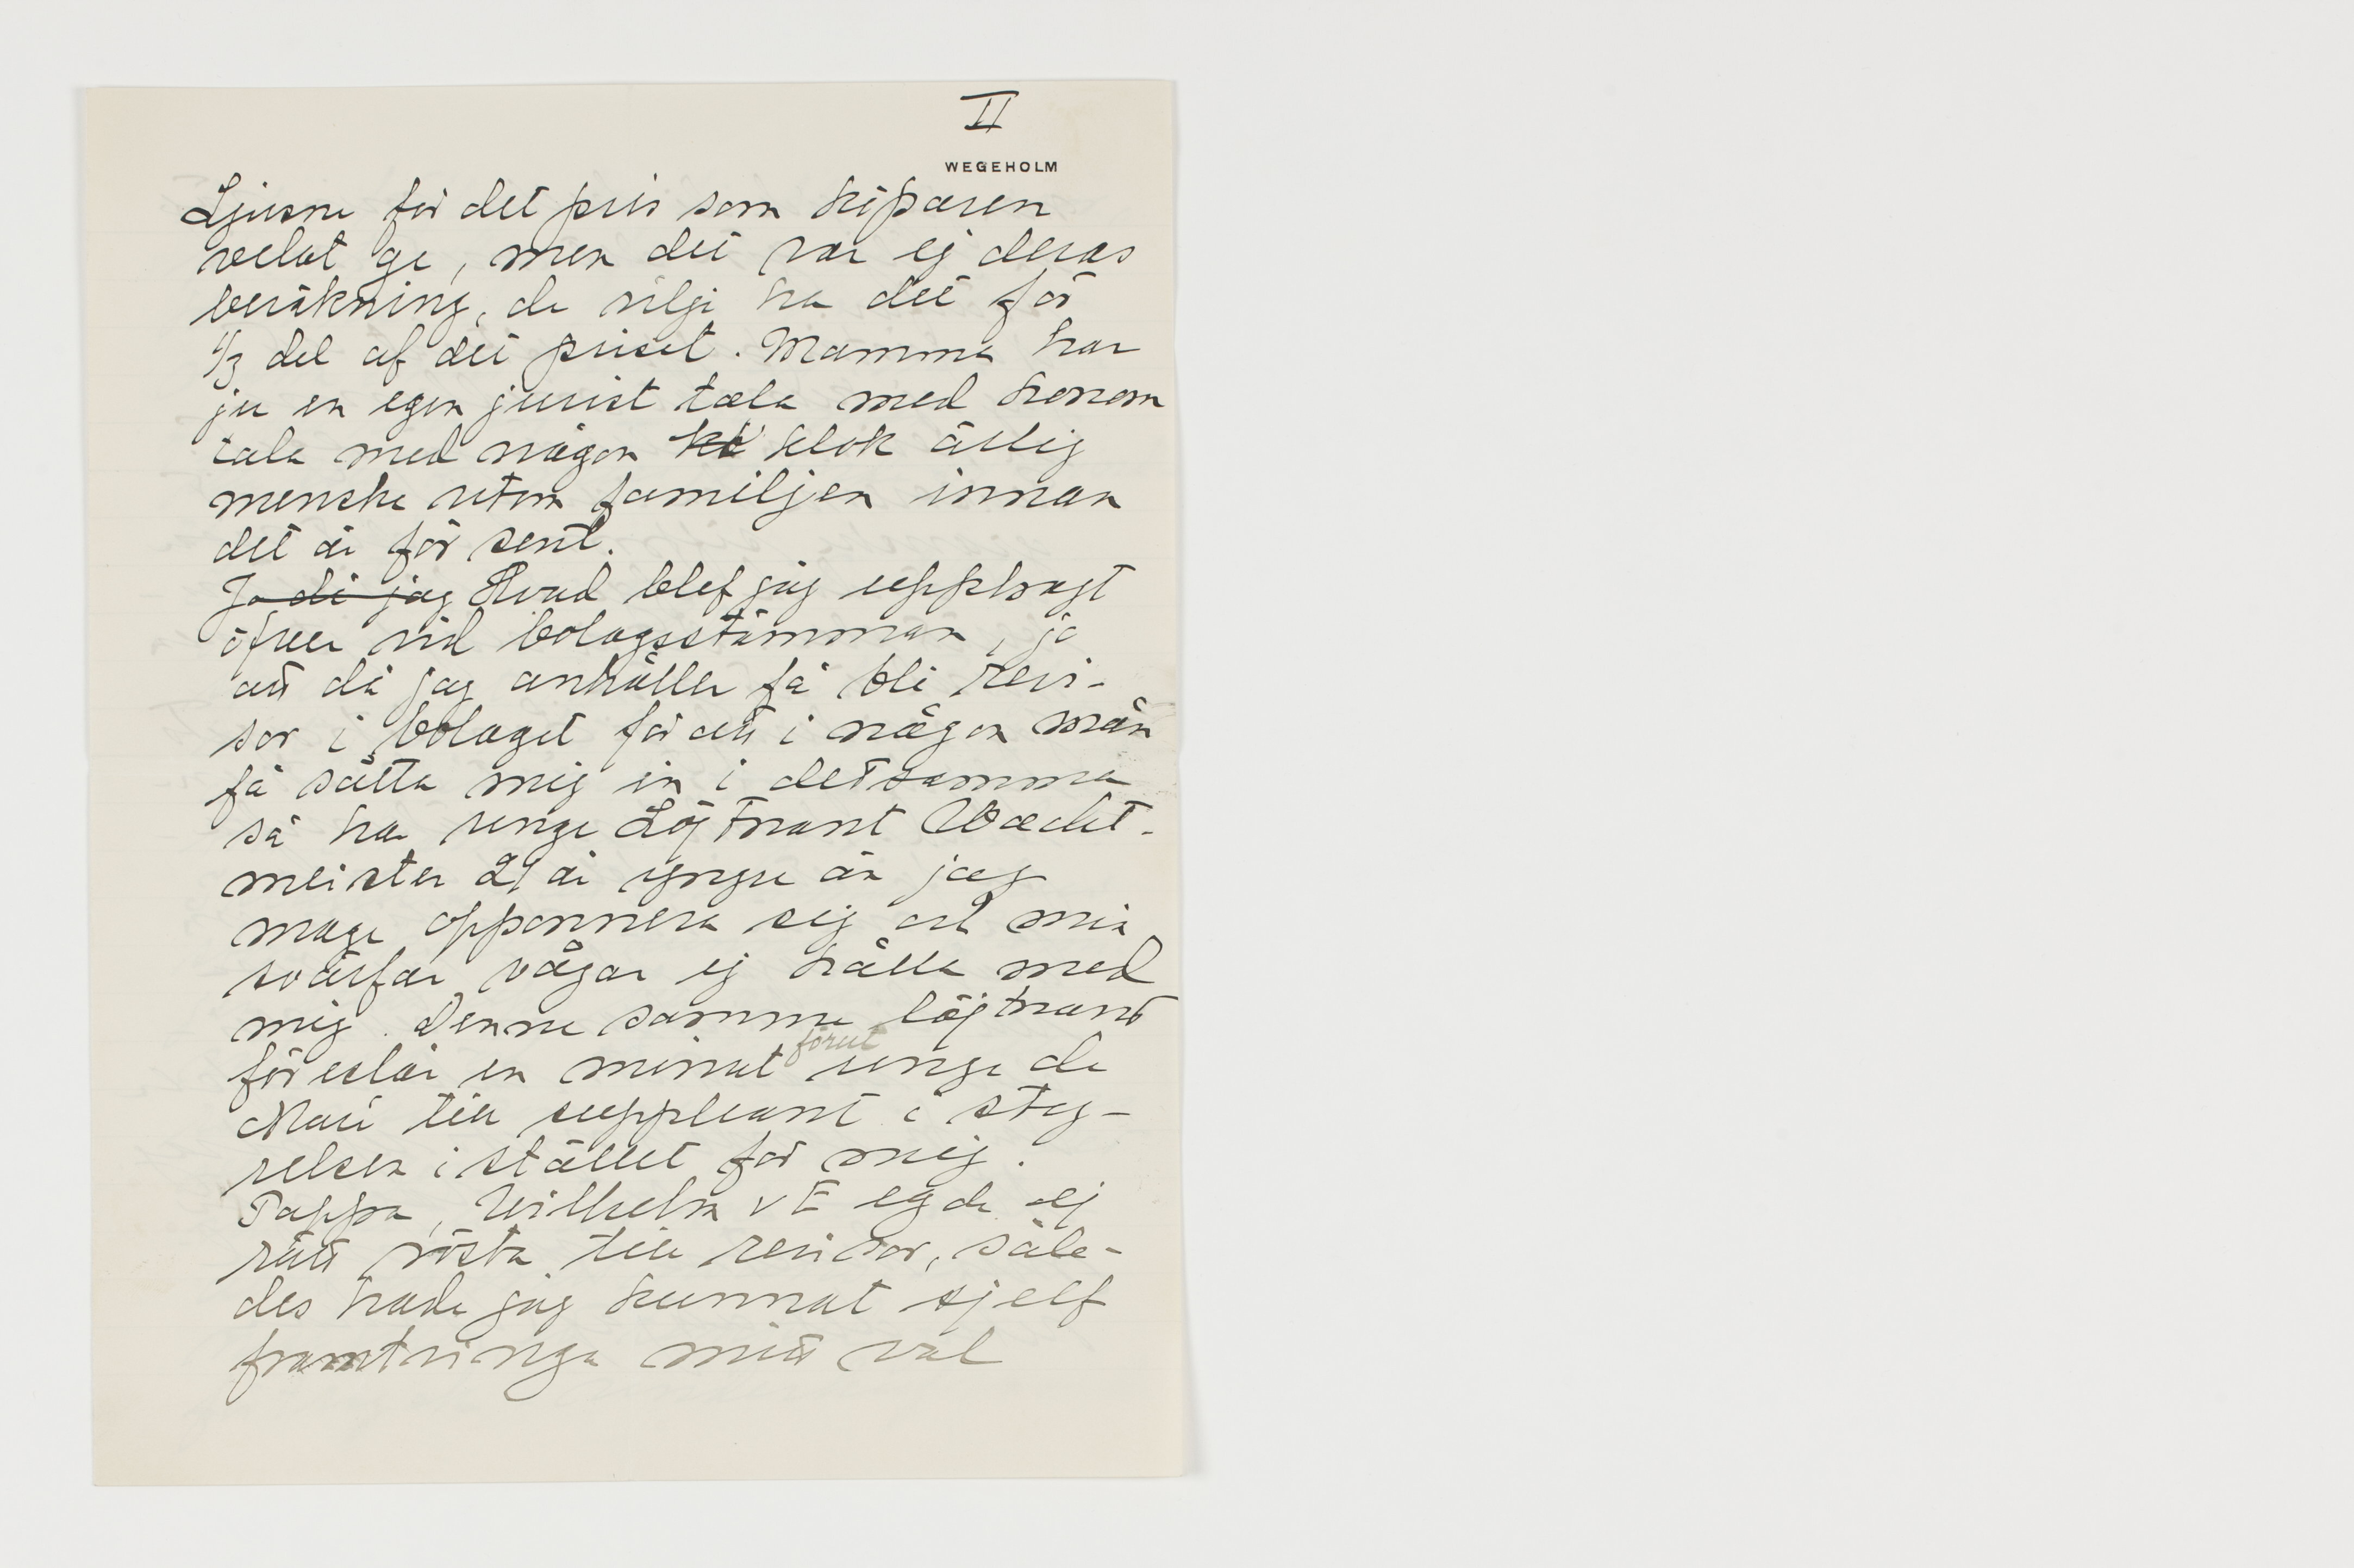 II
WEGEHOLM
Ljusne för det pris som köparen
velat ge, men det var ej deras
beräkning, de vilja ha det för
1/3 del af det priset. Mamma har
ju en egen jurist tala med honom
tala med någon klok ärlig
menske utom familjen innan
det är för sent.
Ja då jag Hvad blef jag uppbragt
öfver vid bolagsstämman, jo
att då jag anhåller få bli revi-
sor i bolaget för att i någon mån
få sätta mig in i detsamma
så ha unge Löjtnant Wacht-
meister 21 år yngre än jag
mage opponnera sig och min
svärfar vågar ej hålla med
mig. Denne samme löjtnant
föreslår en minut förut unge de
Maré till suppleant i sty-
relsen i stället för mig.
Pappa, Wilhelm v E egde ej
rätt rösta till revisor, såle-
des hade jag kunnat sjelf
framtvinga mitt val